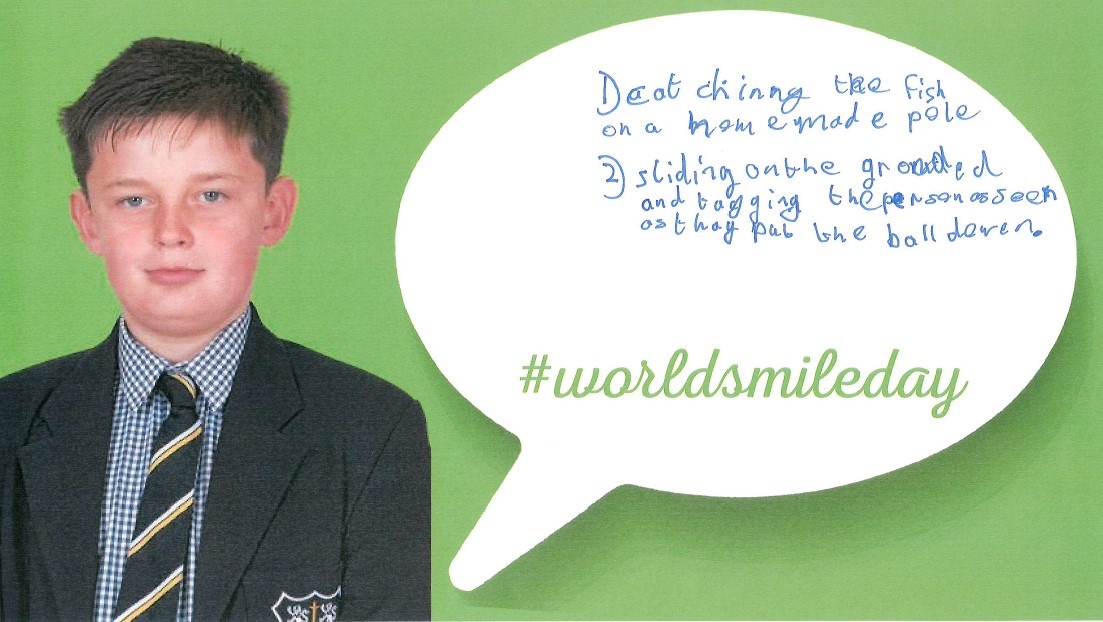 1) cat chinng the fish
on a homemade pole
2) sliding on the grounded
and tagging the person as seen
as they put the ball down.
#worldsmileday